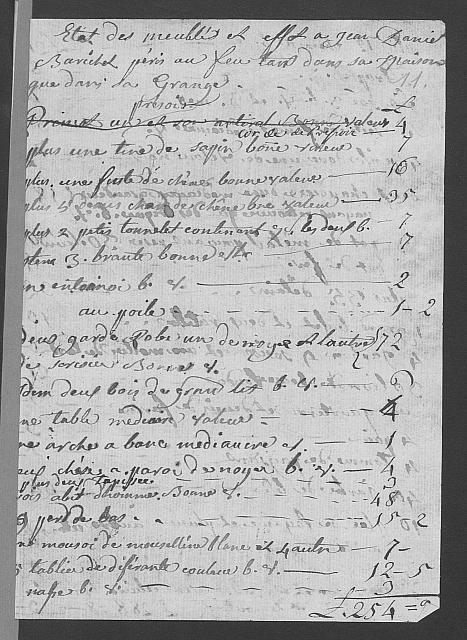 Etat des meublés et effet a Jean Daniel
Barichet péris au feu tant dans sa Maison
que dans sa Grange. 11.
pressoir £
Premt un et son 4
plus une tine de sapin bone valeur 7
plus, une fuste de chêne bonne valeur 16
plus 5 demis char de chêne bone valeur 35
plus 2 petis tonnelet continent les deux b. 7
3. brante bonne 7
entonoi b. v. 2
au poile 1 - 2
deux garde Robe un de noyer et lautre 72
de serisier Bonnes v.
deux bois de grand lit b. v. 8
une table mediocre valeur 4
une arche a banc mediaucre v. 1
chése a paroi de noyer b. v. 4
plus deux Tapisse. 3
abit dhomme Bonne v. 48
9 pere de bas 15 2
mousoi de mouselline blanc et 4 autre 7 -
5 tablier de diferante couleur b. v. 12 - 5
nape b. v. 3
£. 254 = 9